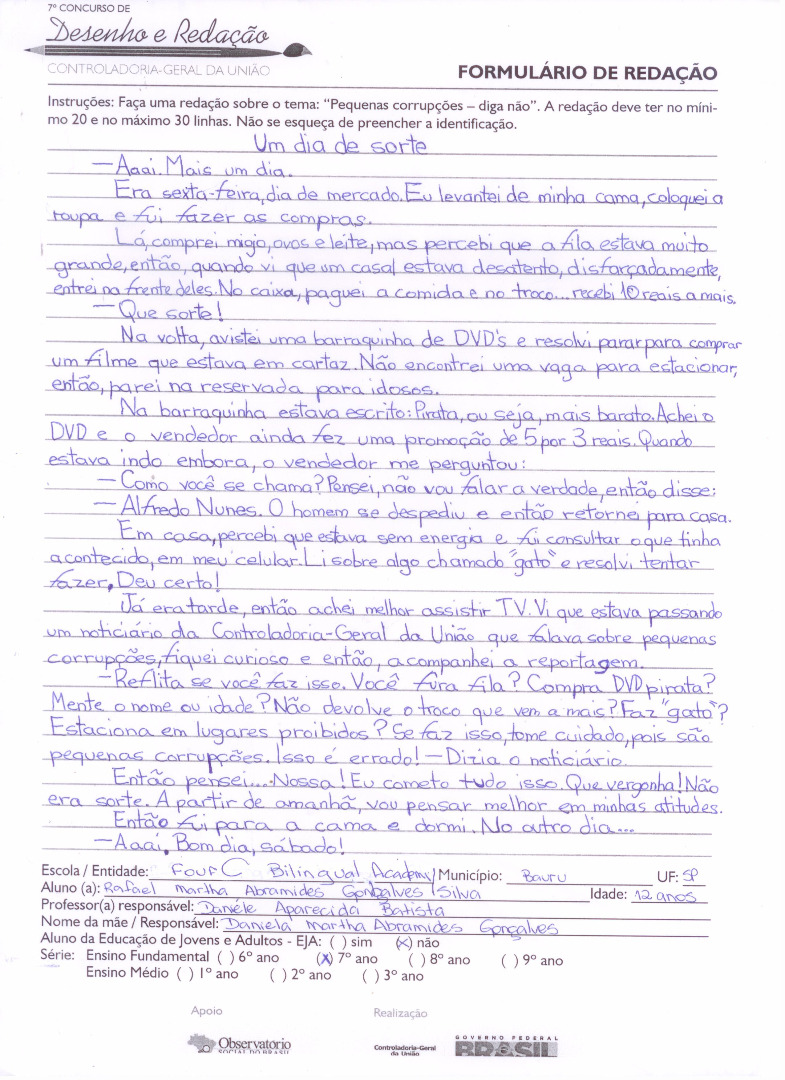 7º CONCURSO DE
Desenho e Redação
CONTROLADORIA-GERAL DA UNIÃO
FORMULÁRIO DE REDAÇÃO
Instruções: Faça uma redação sobre o tema: “Pequenas corrupções – diga não”. A redação deve ter no míni-
mo 20 e no máximo 30 linhas. Não se esqueça de preencher a identificação.
Um dia de sorte
— Aaai. Mais um dia.
Era sexta-feira, dia de mercado. Eu levantei de minha cama, coloquei a
roupa e fui fazer as compras.
Lá, comprei migio, ovos e leite, mas percebi que a fila estava muito
grande, então, quando vi que um casal estava desatento, disfarçadamente,
entrei na frente deles. No caixa, paguei a comida e no troco... recebi 10 reais a mais.
— Que sorte!
Na volta, avistei uma barraquinha de DVD's e resolvi parar para comprar
um filme que estava em cartaz. Não encontrei uma vaga para estacionar,
então, parei na reservada para idosos.
Na barraquinha estava escrito: Pirata, ou seja, mais barato. Achei o
DVD e o vendedor ainda fez uma promoção de 5 por 3 reais. Quando
estava indo embora, o vendedor me perguntou:
— Como você se chama? Pensei, não vou falar a verdade, então disse:
— Alfredo Nunes. O homem se despediu e então retornei para casa.
Em casa, percebi que estava sem energia e fui consultar o que tinha
acontecido, em meu celular. Li sobre algo chamado "gato" e resolvi tentar
fazer. Deu certo!
Já era tarde, então achei melhor assistir TV. Vi que estava passando
um noticiário da Controladoria-Geral da União que falava sobre pequenas
corrupções, fiquei curioso e então, acompanhei a reportagem.
— Reflita se você faz isso. Você fura fila? Compra DVD pirata?
Mente o nome ou idade? Não devolve o troco que vem a mais? Faz "gato"?
Estaciona em lugares proibidos? Se faz isso, tome cuidado, pois são
pequenas corrupções. Isso é errado! — Dizia o noticiário.
Então pensei... - Nossa! Eu cometo tudo isso. Que vergonha! Não
era sorte. A partir de amanhã, vou pensar melhor em minhas atitudes.
Então fui para a cama e dormi. No outro dia...
— Aaai, Bom dia, sábado!
Escola / Entidade: Four C Bilingual Academy Município: Bauru UF: SP
Aluno (a): Rafael Martha Abramides Gonçalves Silva Idade: 12 anos
Professor(a) responsável: Daniele Aparecida Batista
Nome da mãe / Responsável: Daniela Martha Abramides Gonçalves
Aluno da Educação de Jovens e Adultos - EJA: ( ) sim (x) não
Série: Ensino Fundamental ( ) 6º ano (X) 7º ano ( ) 8º ano ( ) 9º ano
Ensino Médio ( ) 1º ano ( ) 2º ano ( ) 3º ano
Apoio Realização
Observatório
SOCIAL DO BRASIL
Controladoria-Geral
da União
GOVERNO FEDERAL
BRASIL